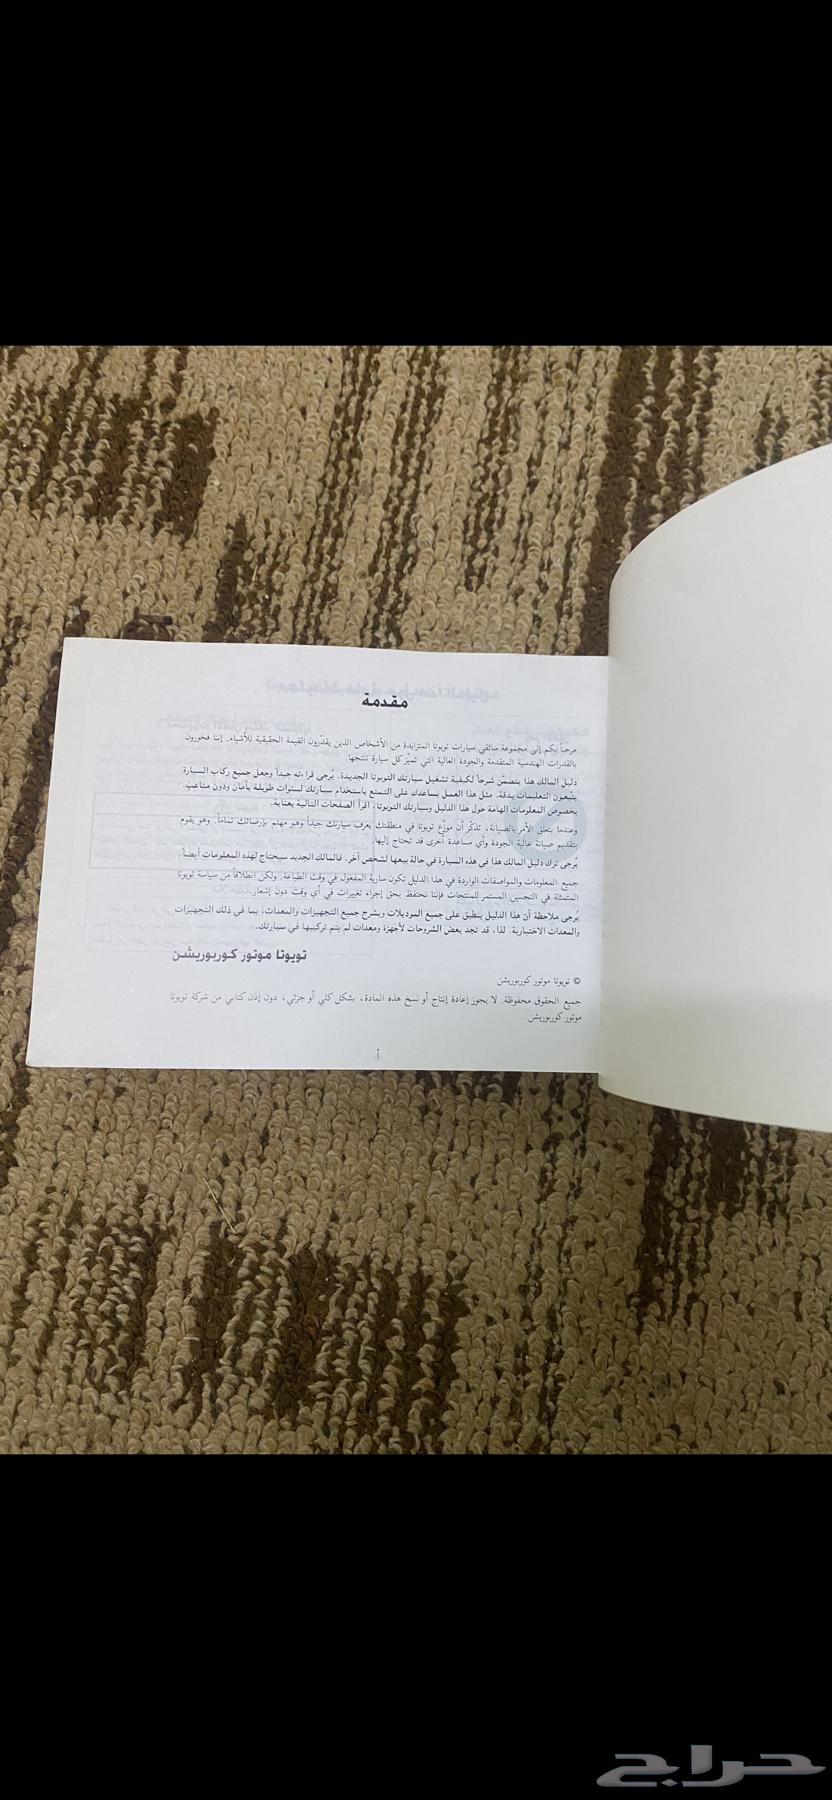 مقدمة
مرحباً بكم إلى مجموعة سائقي سيارات تويوتا المتزايدة من الأشخاص الذين يقدّرون القيمة الحقيقية للأشياء. إننا فخورون
بالقدرات الهندسية المتقدمة والجودة العالية التي تميّز كل سيارة ننتجها.
دليل المالك هذا يتضمّن شرحاً لكيفية تشغيل سيارتك التويوتا الجديدة. يُرجى قراءته جيداً وجعل جميع ركاب السيارة
يتبعون التعليمات بدقة. مثل هذا العمل يساعدك على التمتع باستخدام سيارتك لسنوات طويلة بأمان ودون متاعب.
بخصوص المعلومات الهامة حول هذا الدليل وسيارتك التويوتا، اقرأ الصفحات التالية بعناية.
وعندما يتعلق الأمر بالصيانة، تذكّر أن موزّع تويوتا في منطقتك يعرف سيارتك جيداً وهو مهتم بإرضائك تماماً. وهو يقوم
بتقديم صيانة عالية الجودة وأي مساعدة أخرى قد تحتاج إليها.
يُرجى ترك دليل المالك هذا في هذه السيارة في حالة بيعها لشخص آخر. فالمالك الجديد سيحتاج لهذه المعلومات أيضاً.
جميع المعلومات والمواصفات الواردة في هذا الدليل تكون سارية المفعول في وقت الطباعة. ولكن انطلاقاً من سياسة تويوتا
المتمثلة في التحسين المستمر للمنتجات فإننا نحتفظ بحق إجراء تغييرات في أي وقت دون إشعار.
يُرجى ملاحظة أن هذا الدليل ينطبق على جميع الموديلات ويشرح جميع التجهيزات والمعدات، بما في ذلك التجهيزات
والمعدات الاختيارية. لذا، قد تجد بعض الشروحات لأجهزة ومعدات لم يتم تركيبها في سيارتك.
تويوتا موتور كوربوريشن
© تويوتا موتور كوربوريشن
جميع الحقوق محفوظة. لا يجوز إعادة إنتاج أو نسخ هذه المادة، بشكل كلي أو جزئي، دون إذن كتابي من شركة تويوتا
موتور كوربوريشن.
أ
حراج